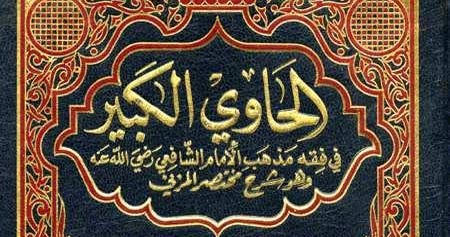 الحاوي الكبير
في فقه مذهب الإمام الشافعي رضي الله عنه
وهو شرح مختصر المزني